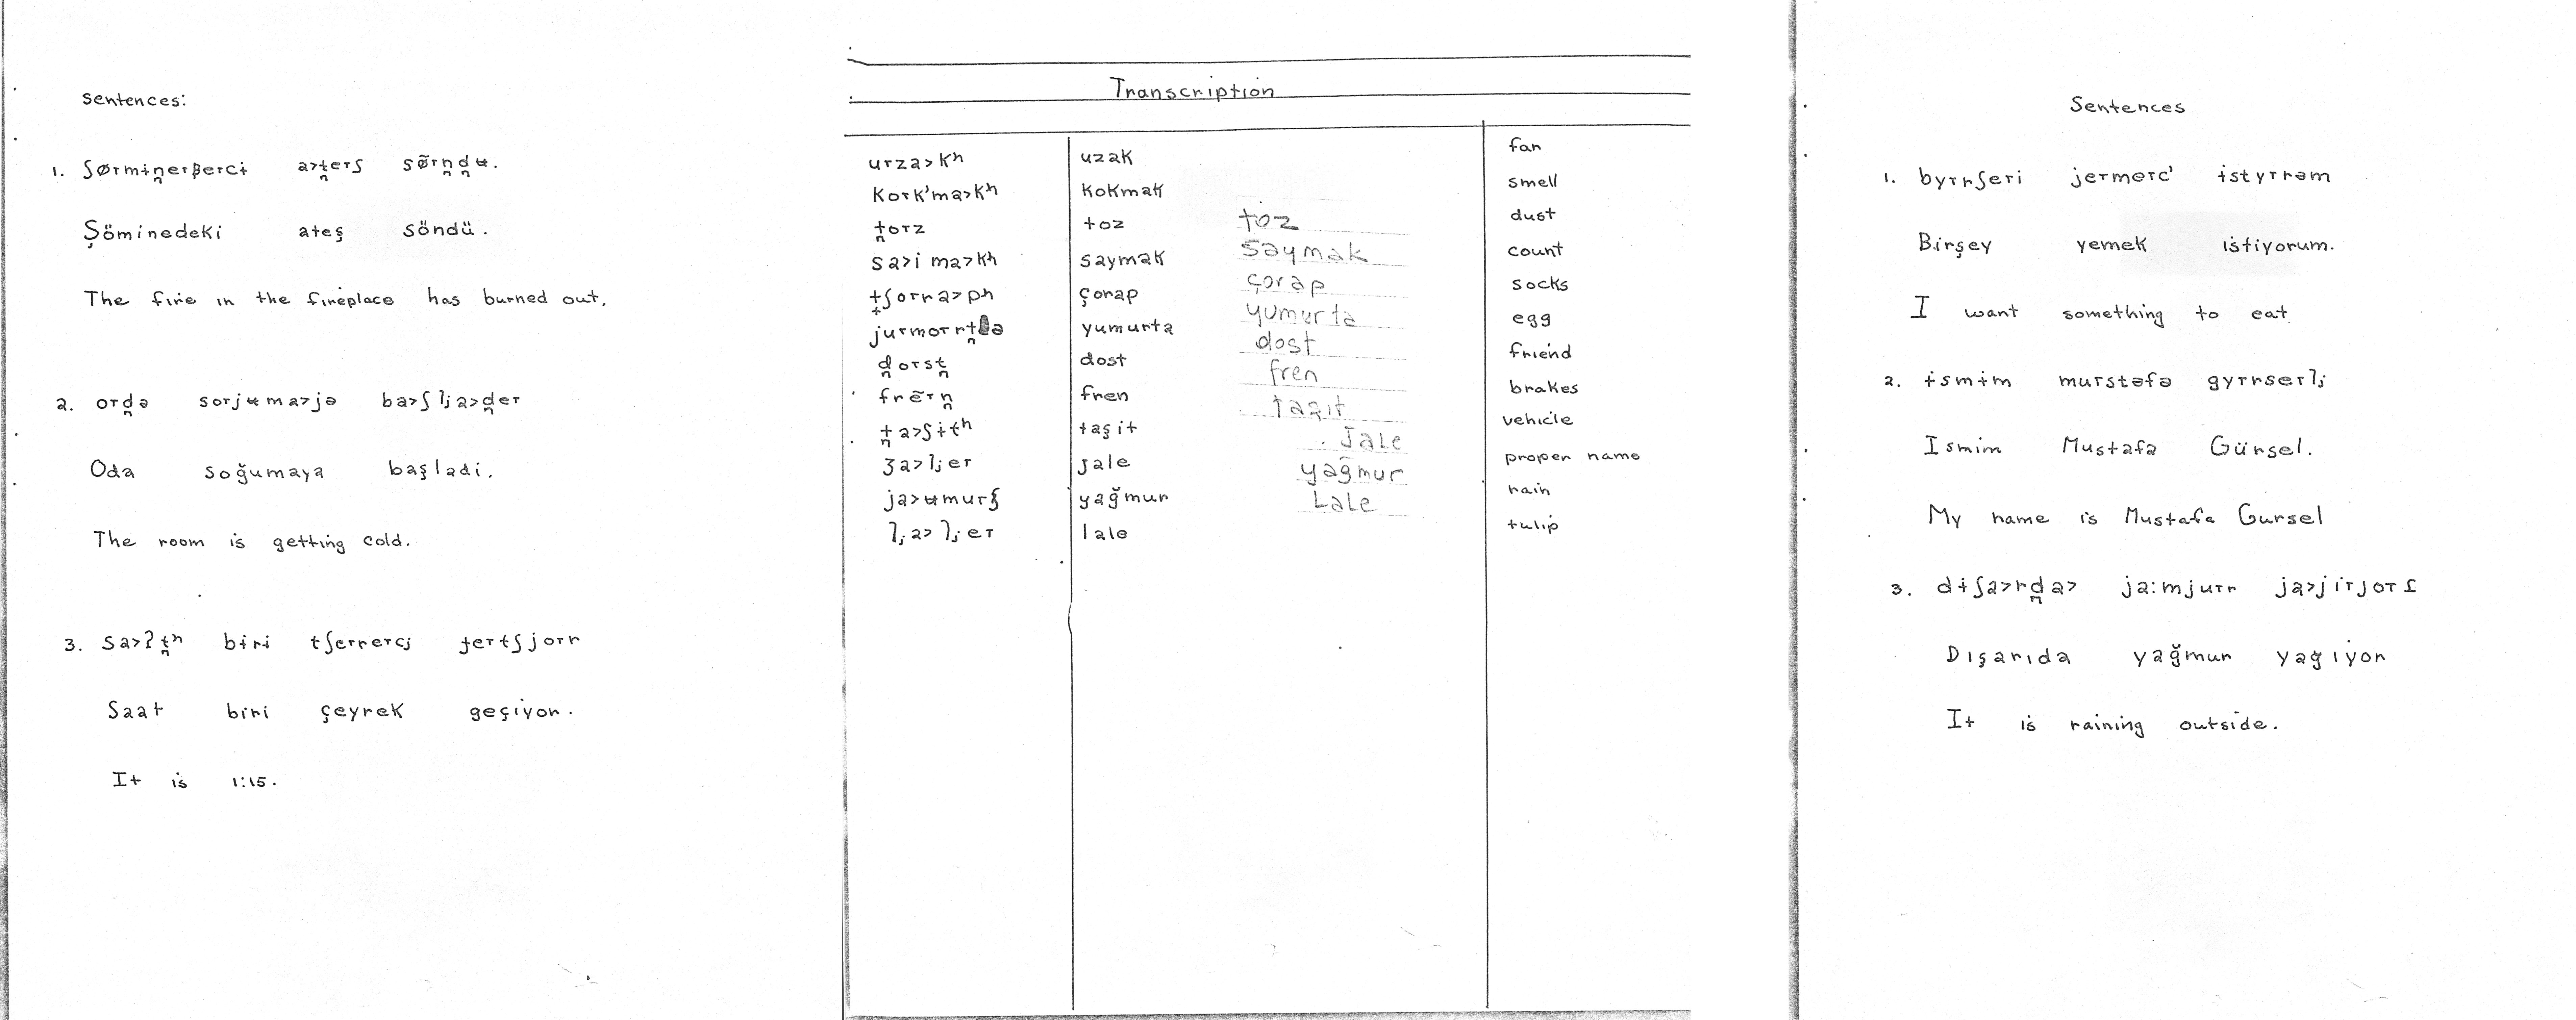 Sentences:
1. ʃøτmɨn̪eτβeτci a>t̪eτʃ sø̃τn̪d̪ʉ.
Şöminedeki ateş söndü.
The fire in the fireplace has burned out.
2. oτd̪ə soτjʉma>jə ba>ʃl̡a>d̪eτ
Oda soğumaya başladi.
The room is getting cold.
3. sa>ʔt̪ʰ biri tʃeτreτcj ɟeτtʃjoτr
Saat biri çeyrek geçiyor.
It is 1:15.
Transcription
uτza>kʰ uzak far
koτk'ma>kʰ kokmak smell
t̪oτz toz toz dust
sa>i ma>kʰ saymak saymak count
tʃoτra>pʰ çorap çorap socks
juτmoτrt̪ə yumurta yumurta egg
d̪oτst̪ dost dost friend
frẽτn̪ fren fren brakes
t̪a>ʃɨtʰ taşit taşıt vehicle
ʒa>l̡eτ jale Jale proper name
ja>ʉmuτʂ yağmur yağmur rain
l̡a>l̡eτ lale Lale tulip
Sentences
1. byτrʃeτi jeτmeτc' istyτrəm
Birşey yemek istiyorum.
I want something to eat
2. ɨsmɨm muτstəfə gyτrseτl̡
Ismim Mustafa Gürsel.
My name is Mustafa Gursel
3. dɨʃa>rd̪a> ja:mjuτr ja>jiτjoτɾ
Dışarıda yağmur yağıyor
It is raining outside.